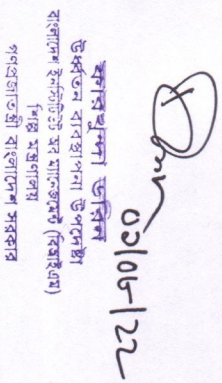 জেবিন
ঊর্ধ্বতন ব্যবস্থাপনা উপদেষ্টা
বাংলাদেশ ইনস্টিটিউট অব ম্যানেজমেন্ট (বিআইএম)
শিল্প মন্ত্রণালয়
গণপ্রজাতন্ত্রী বাংলাদেশ সরকার